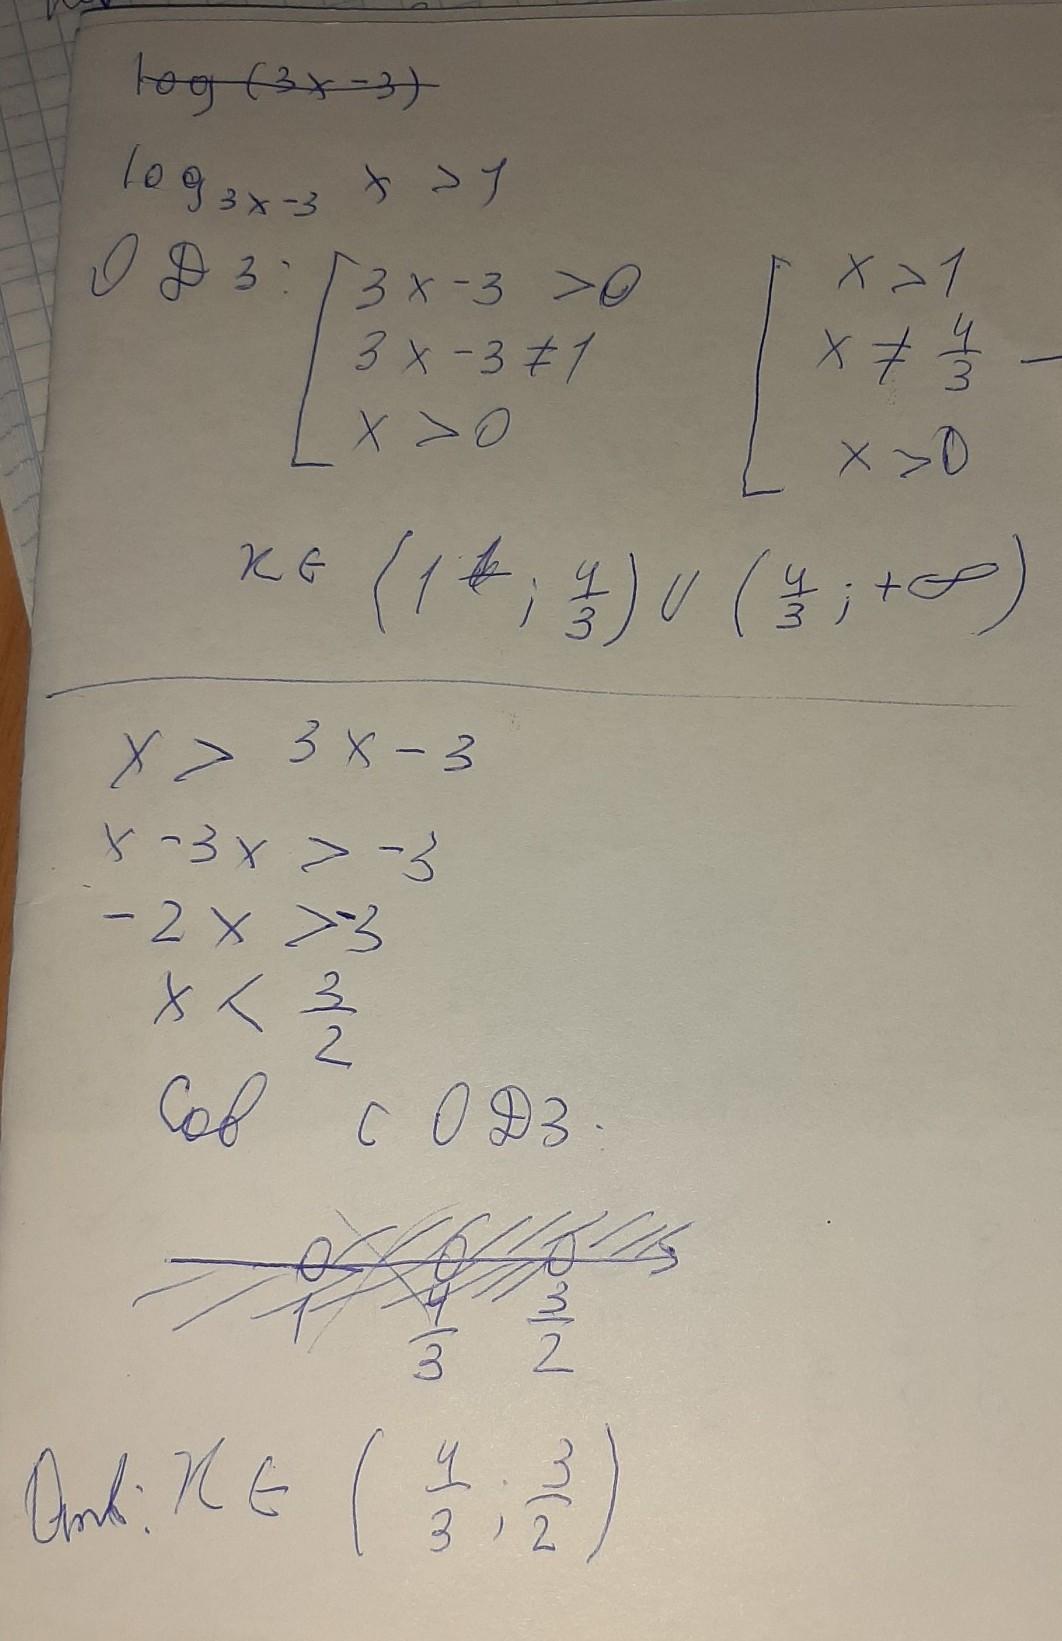 log (3x-3)
log 3x-3 x > 1
ОДЗ: [ 3x-3 > 0 [ x > 1
3x-3 ≠ 1 x ≠ 4/3 —
x > 0 x > 0
x ∈ (1 ; 4/3) ∪ (4/3 ; +∞)
x > 3x-3
x-3x > -3
-2x > -3
x < 3/2
Сов с ОДЗ.
1 4/3 3/2
Отв: x ∈ (4/3 ; 3/2)